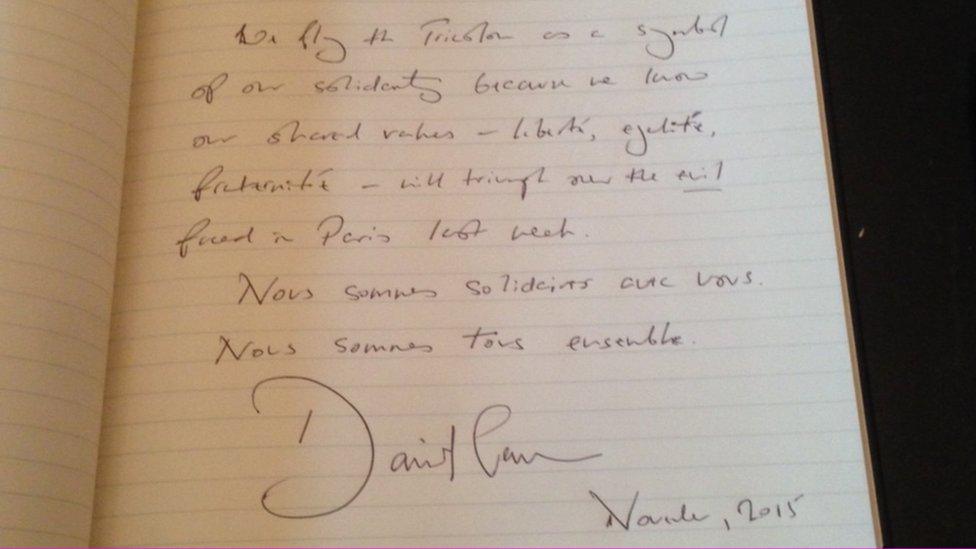 We fly the Tricolour as a symbol
of our solidarity because we know
our shared values - liberté, egalité,
fraternité - will triumph over the evil
faced in Paris last week.
Nous sommes solidaires avec vous.
Nous sommes tous ensemble.
David Cameron
November, 2015